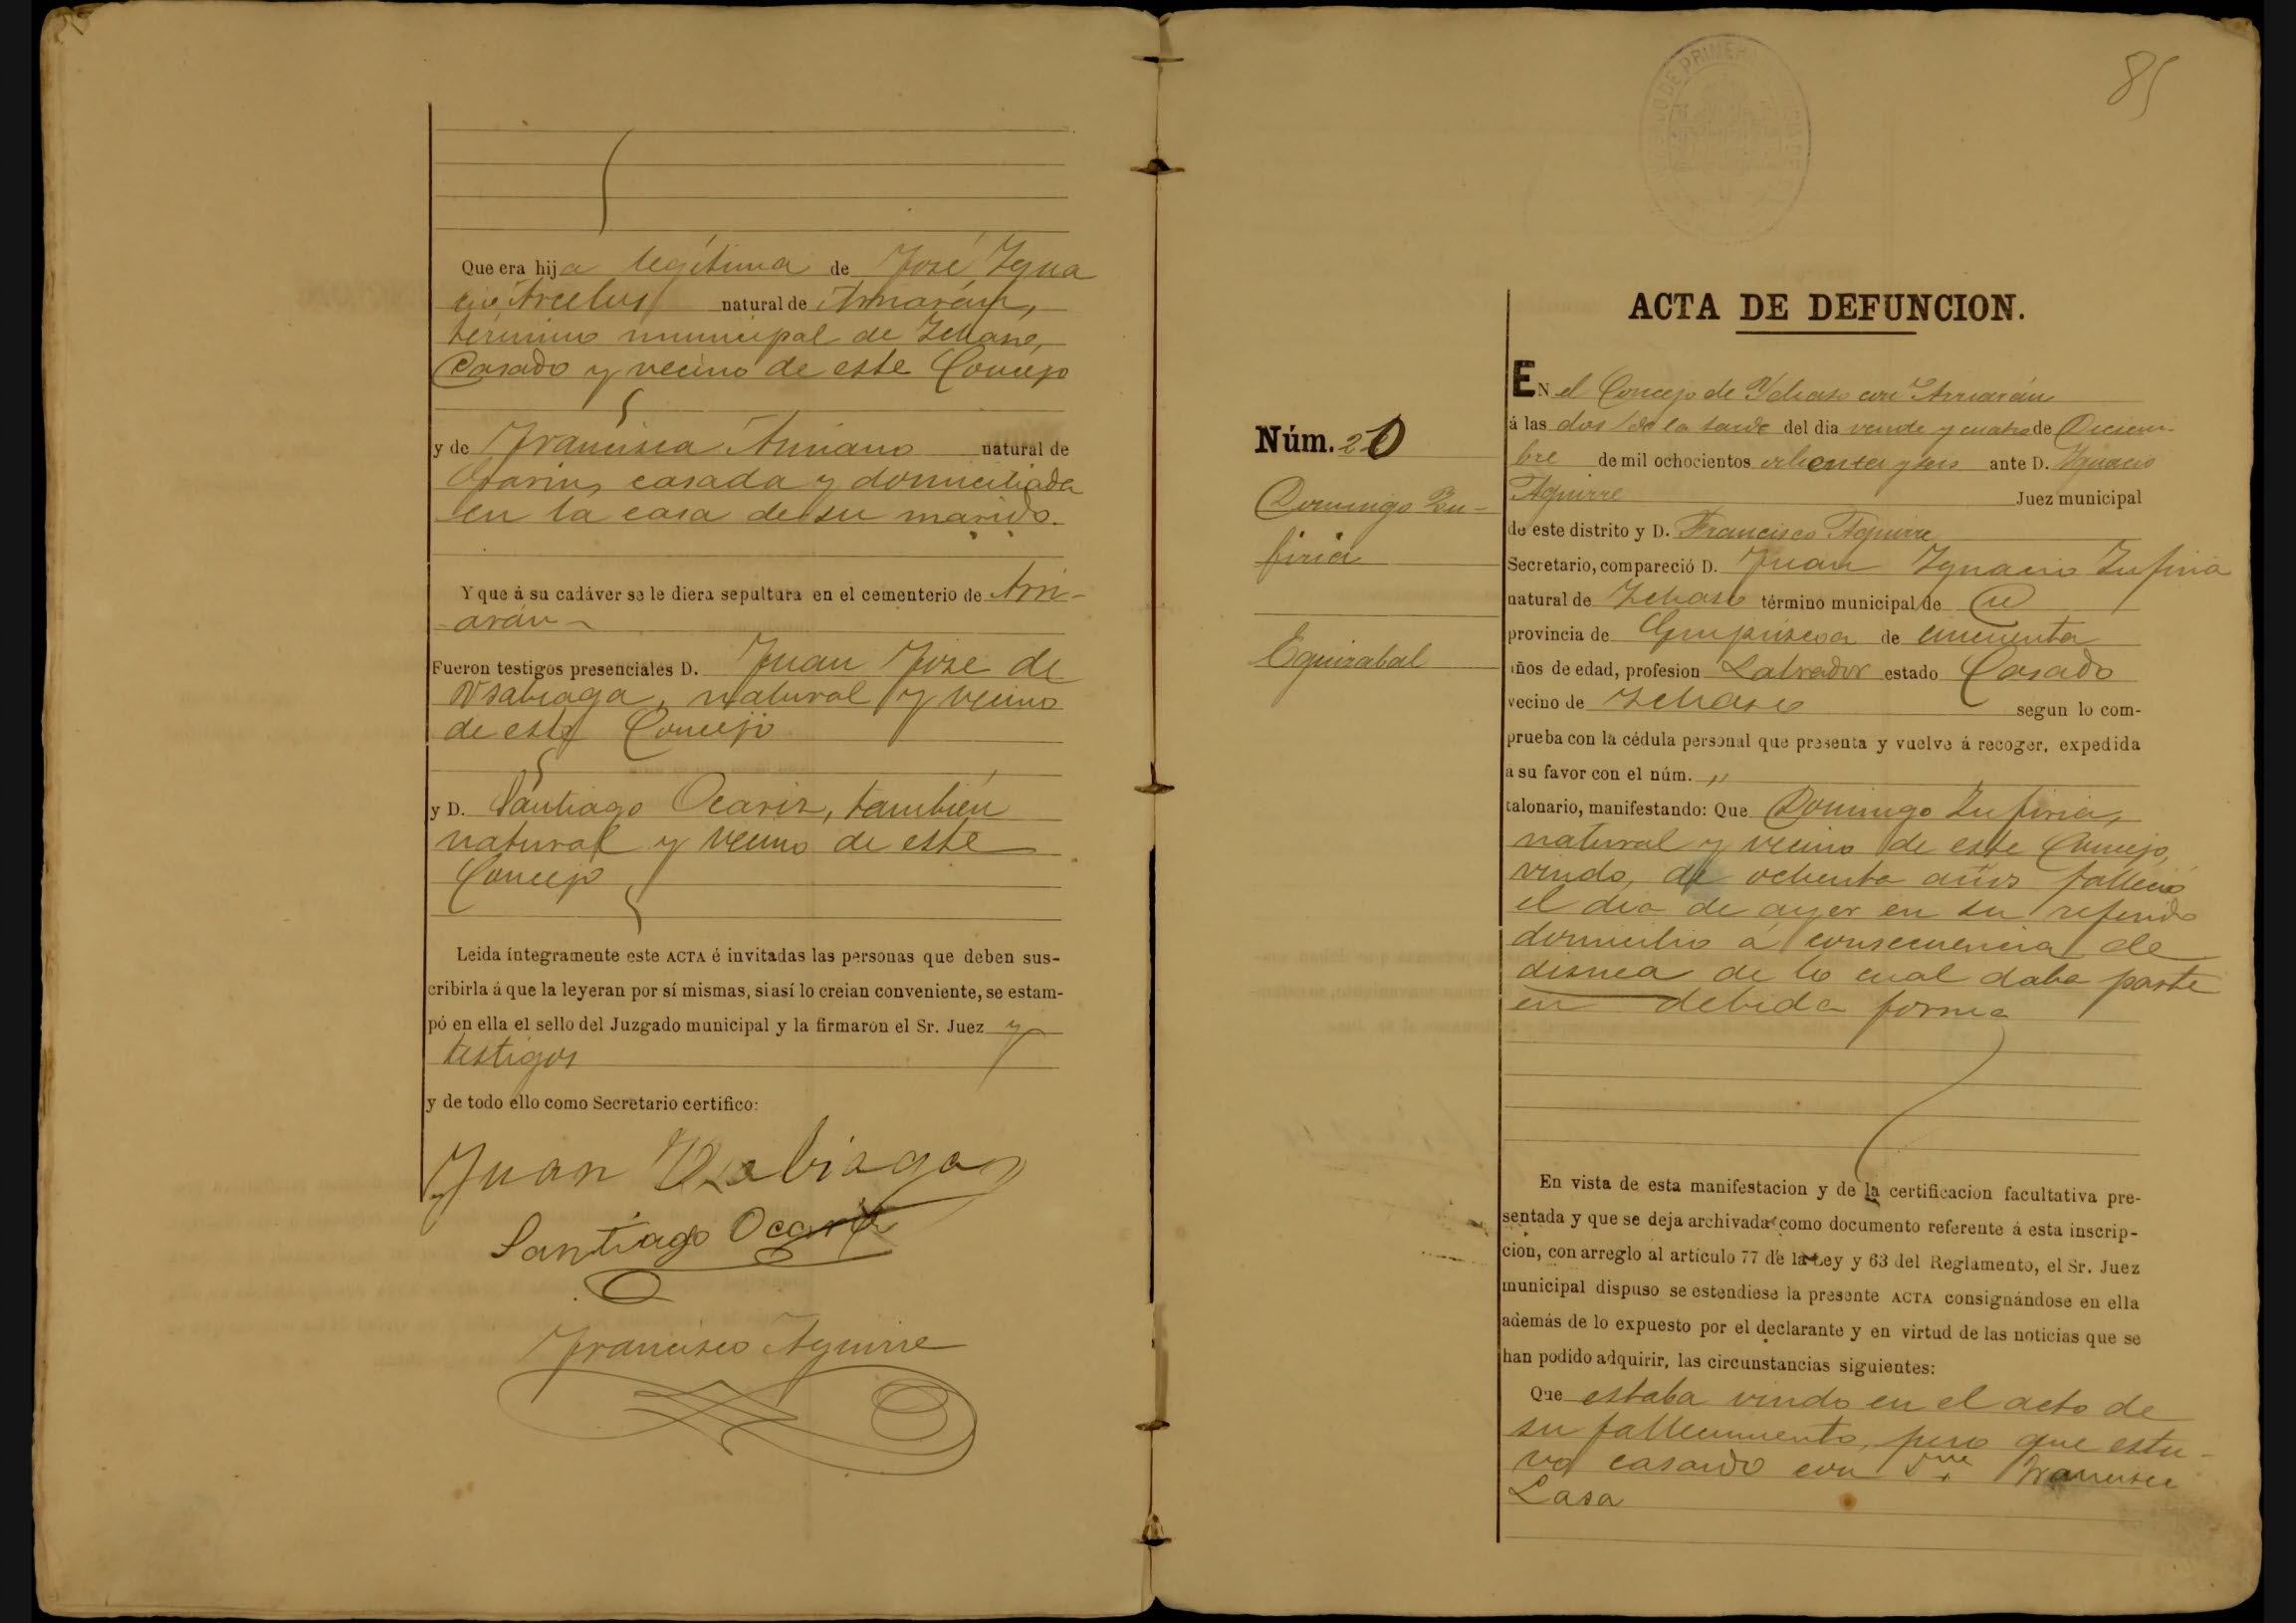 Que era hija legítima de José Ygna
cio Arcelus natural de Arriarán,
término municipal de Ichaso,
Casado y vecino de este Concejo
y de Francisca natural de
casada y domiciliada
en la casa de su marido.
Y que á su cadáver se le diera sepultura en el cementerio de Arri-
arán
Fueron testigos presenciales D. Juan José de
Usabiaga, natural y vecino
de este Concejo
y D. Santiago Ocariz, también
natural y vecino de este
Concejo
Leida íntegramente este ACTA é invitadas las personas que deben sus-
cribirla á que la leyeran por sí mismas, si así lo creian conveniente, se estam-
pó en ella el sello del Juzgado municipal y la firmaron el Sr. Juez y
testigos
y de todo ello como Secretario certifico:
Juan Usabiaga
Santiago Ocariz
Francisco Aguirre
85
JUZGADO DE PRIMERA
ACTA DE DEFUNCION.
EN el Concejo de Ychaso con Arriarán
á las dos de la tarde del dia veinte y cuatro de Diciem-
bre de mil ochocientos ochenta y seis ante D. Ygnacio
Aguirre Juez municipal
de este distrito y D. Francisco Aguirre
Secretario, compareció D. Juan Ygnacio Zufiria
natural de Ichaso término municipal de id
provincia de Guipúzcoa de cincuenta
años de edad, profesion Labrador estado Casado
vecino de Ichaso segun lo com-
prueba con la cédula personal que presenta y vuelve á recoger, expedida
a su favor con el núm. "
talonario, manifestando: Que Domingo Zufiria,
natural y vecino de este Concejo,
viudo, de ochenta años falleció
el dia de ayer en su referido
domicilio á consecuencia de
disnea de lo cual daba parte
en debida forma
En vista de esta manifestacion y de la certificacion facultativa pre-
sentada y que se deja archivada como documento referente á esta inscrip-
cion, con arreglo al artículo 77 de la Ley y 63 del Reglamento, el Sr. Juez
municipal dispuso se estendiese la presente ACTA consignándose en ella
además de lo expuesto por el declarante y en virtud de las noticias que se
han podido adquirir, las circunstancias siguientes:
Que estaba viudo en el acto de
su fallecimiento, pero que estu-
vo casado con Francisca
Lasa
Núm. 20
Domingo Zu-
firia
Eguizabal